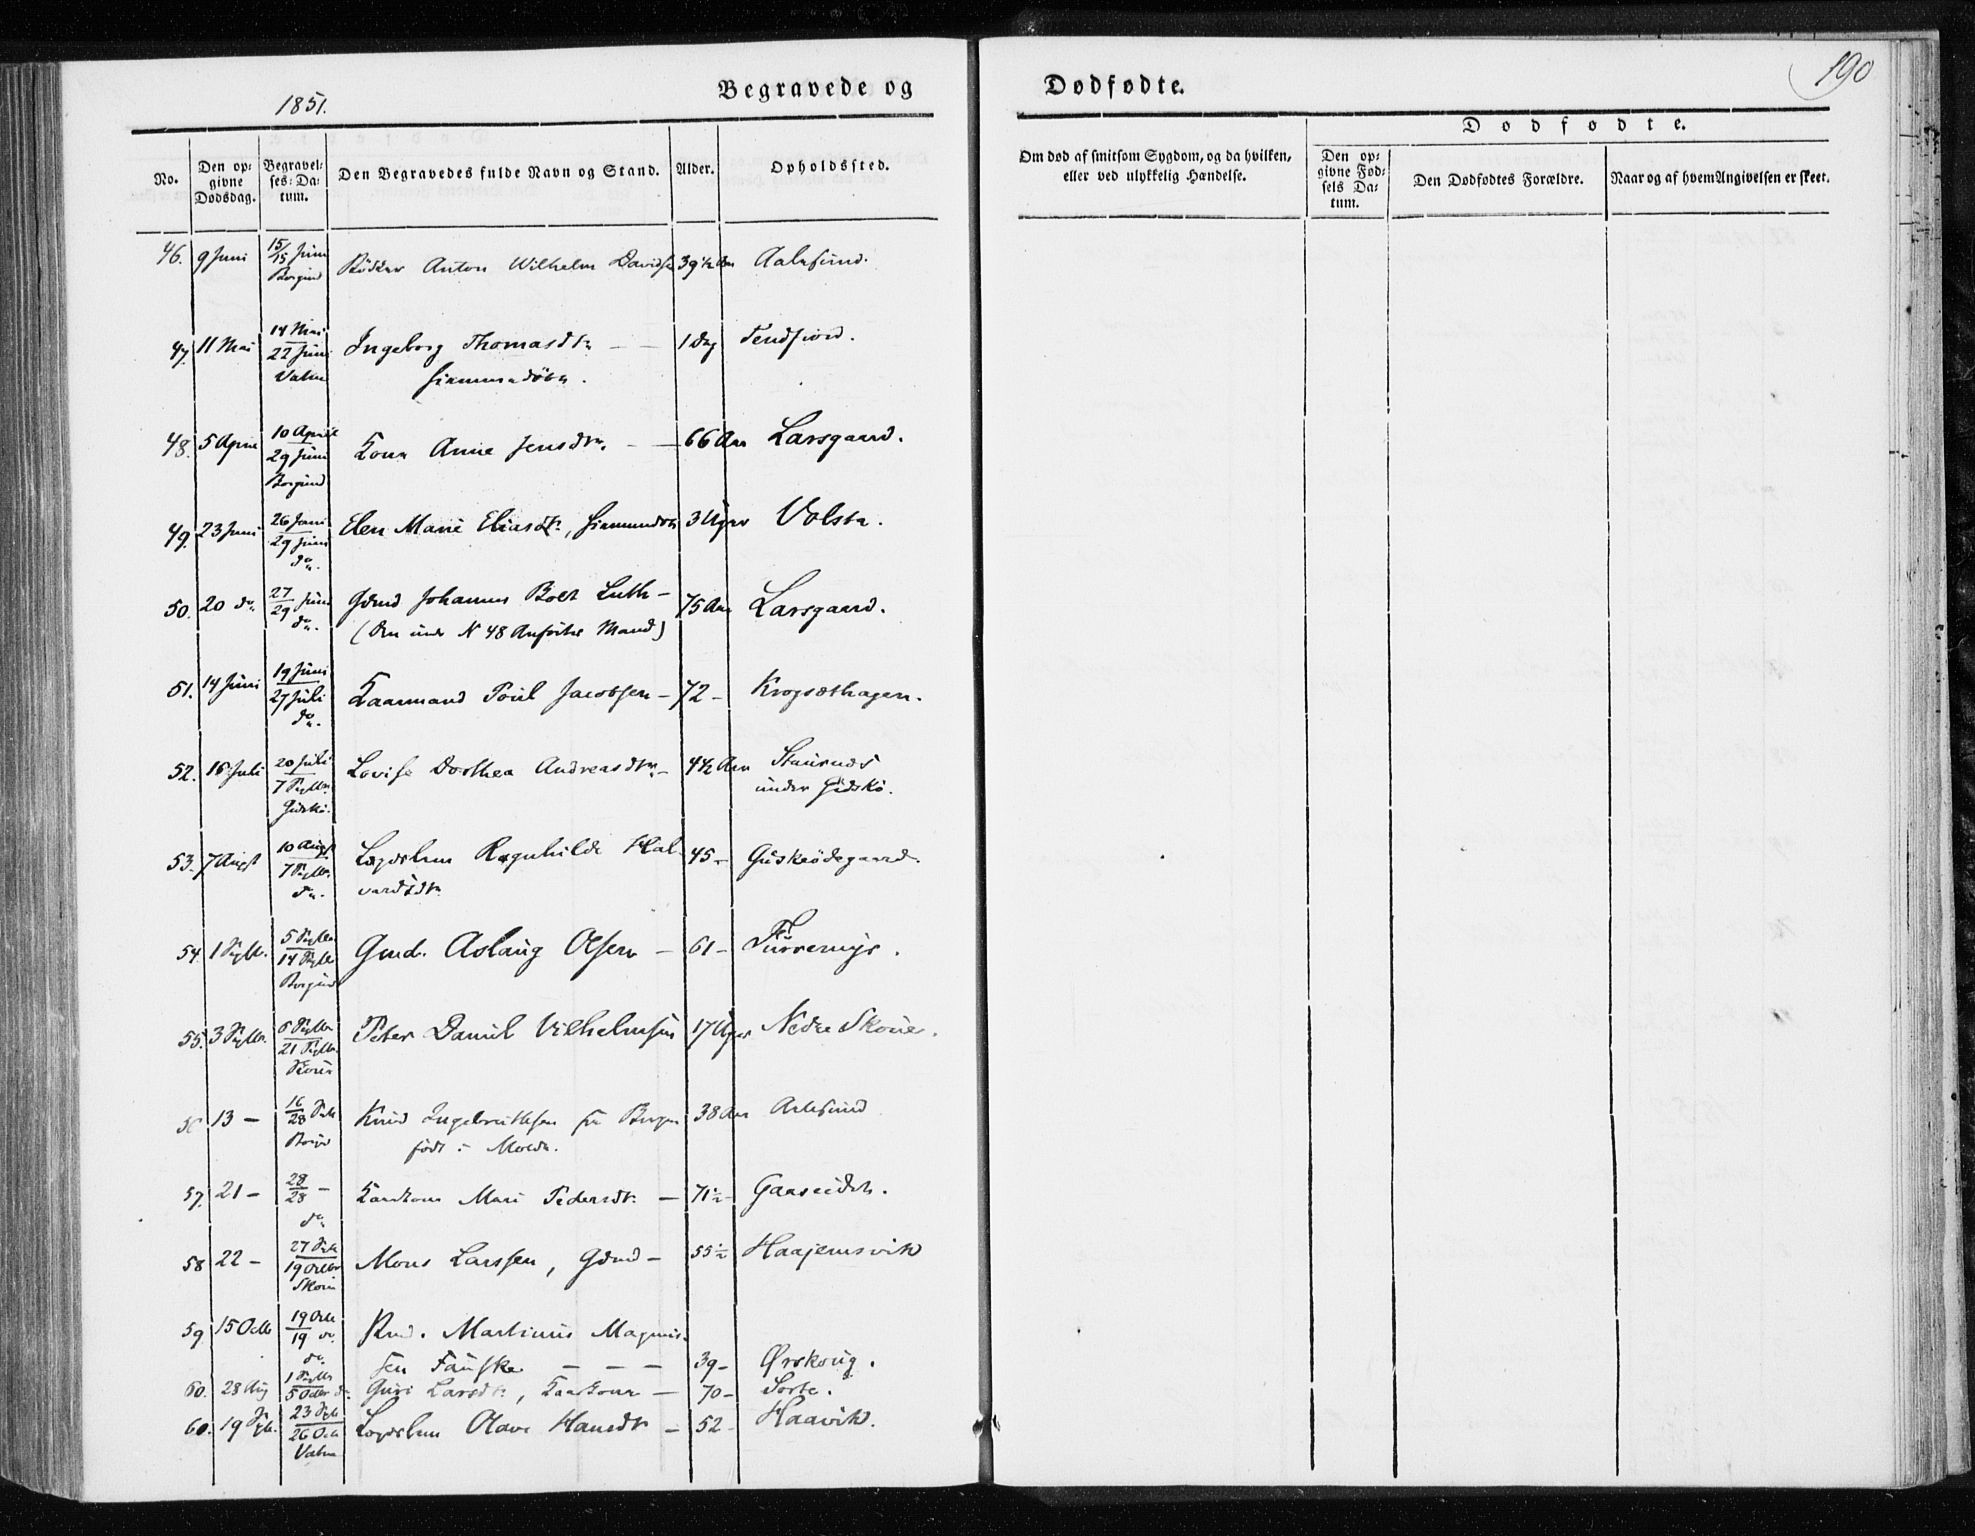 190
1851.
Begravede og Dødfødte.
No.
Den opgivne Dødsdag.
Begravelses-Datum.
Den Begravedes fulde Navn og Stand.
Alder.
Opholdssted.
Om død af smitsom Sygdom, og da hvilken, eller ved ulykkelig Hændelse.
Dødfødte.
Den opgivne Fødsels Datum.
Den Dødfødtes Forældre.
Naar og af hvem Angivelsen er skeet.
46. 9 Juni 15/15 Juni Borgund Bødker Anton Wilhelm Davidsen 39½ Aar Aalesund.
47. 11 Mai 14 Mai 22 Juni Vatne Ingeborg Thomasdtr. — — 1 Dag Tendfiord.
hjemmedøbt.
48. 5 April 10 April 29 Juni Borgund Kone Anne Jensdtr. — — 66 Aar Larsgaard.
49. 23 Juni 26 Juni 29 Juni do. Elen Marie Eliasdtr., hjemmedøbt 3 Uger Volsta.
50. 20 do. 27/29 Juni do. Gdmd Johannes Boldt Luth — 75 Aar Larsgaard.
(den under N 48 Anførtes Mand)
51. 14 Juni 19 Juni 27 Juli do. Kaarmand Poul Jacobsen — 72 — Krogsæthagen.
52. 16 Juli 20 Juli 7 Septbr. Gidskø. Lovise Dorthea Andreasdtr. — 4½ Aar Staurnæs
under Gidskø.
53. 7 Augst 10 Augst 7 Septbr. do. Lægdslem Ragnhilde Hal- 45 — Giskeødegaard.
vardsdtr.
54. 1 Septbr. 5 Septbr 14 Septbr Borgund Gmd. Aslaug Olsen — 61 — Furremyr.
55. 3 Septbr. 6 Septbr 21 Septbr. Skoue Peter Daniel Vilhelmsen 17 Uger Nedre Skoue.
56 13 — 16/28 Sept Borgd Knud Ingebrithsen fra Bergen 38 Aar Aalesund
født i Molde.
57. 21 — 28/28 — do. Kaarkone Mari Pedersdtr. — 71½ — Gaaseidet.
58 22 — 27 Sept 19 Octbr Skoue Mons Larssen, Gdmd — 55½ Haajemsvik
59 15 Octb 19 Octb 19 do. do. Pmd. Martinus Magnus-
sen Fauske — — — 39 — Ørskoug.
60. 28 Aug 1 Septbr 5 Octbr do. Guri Larsdtr., Kaarkone — 70 — Sorte.
60. 19 Sptb. 23 Sept 26 Oct Vatne Lægdslem Olave Hansdtr — 52 — Haavik.